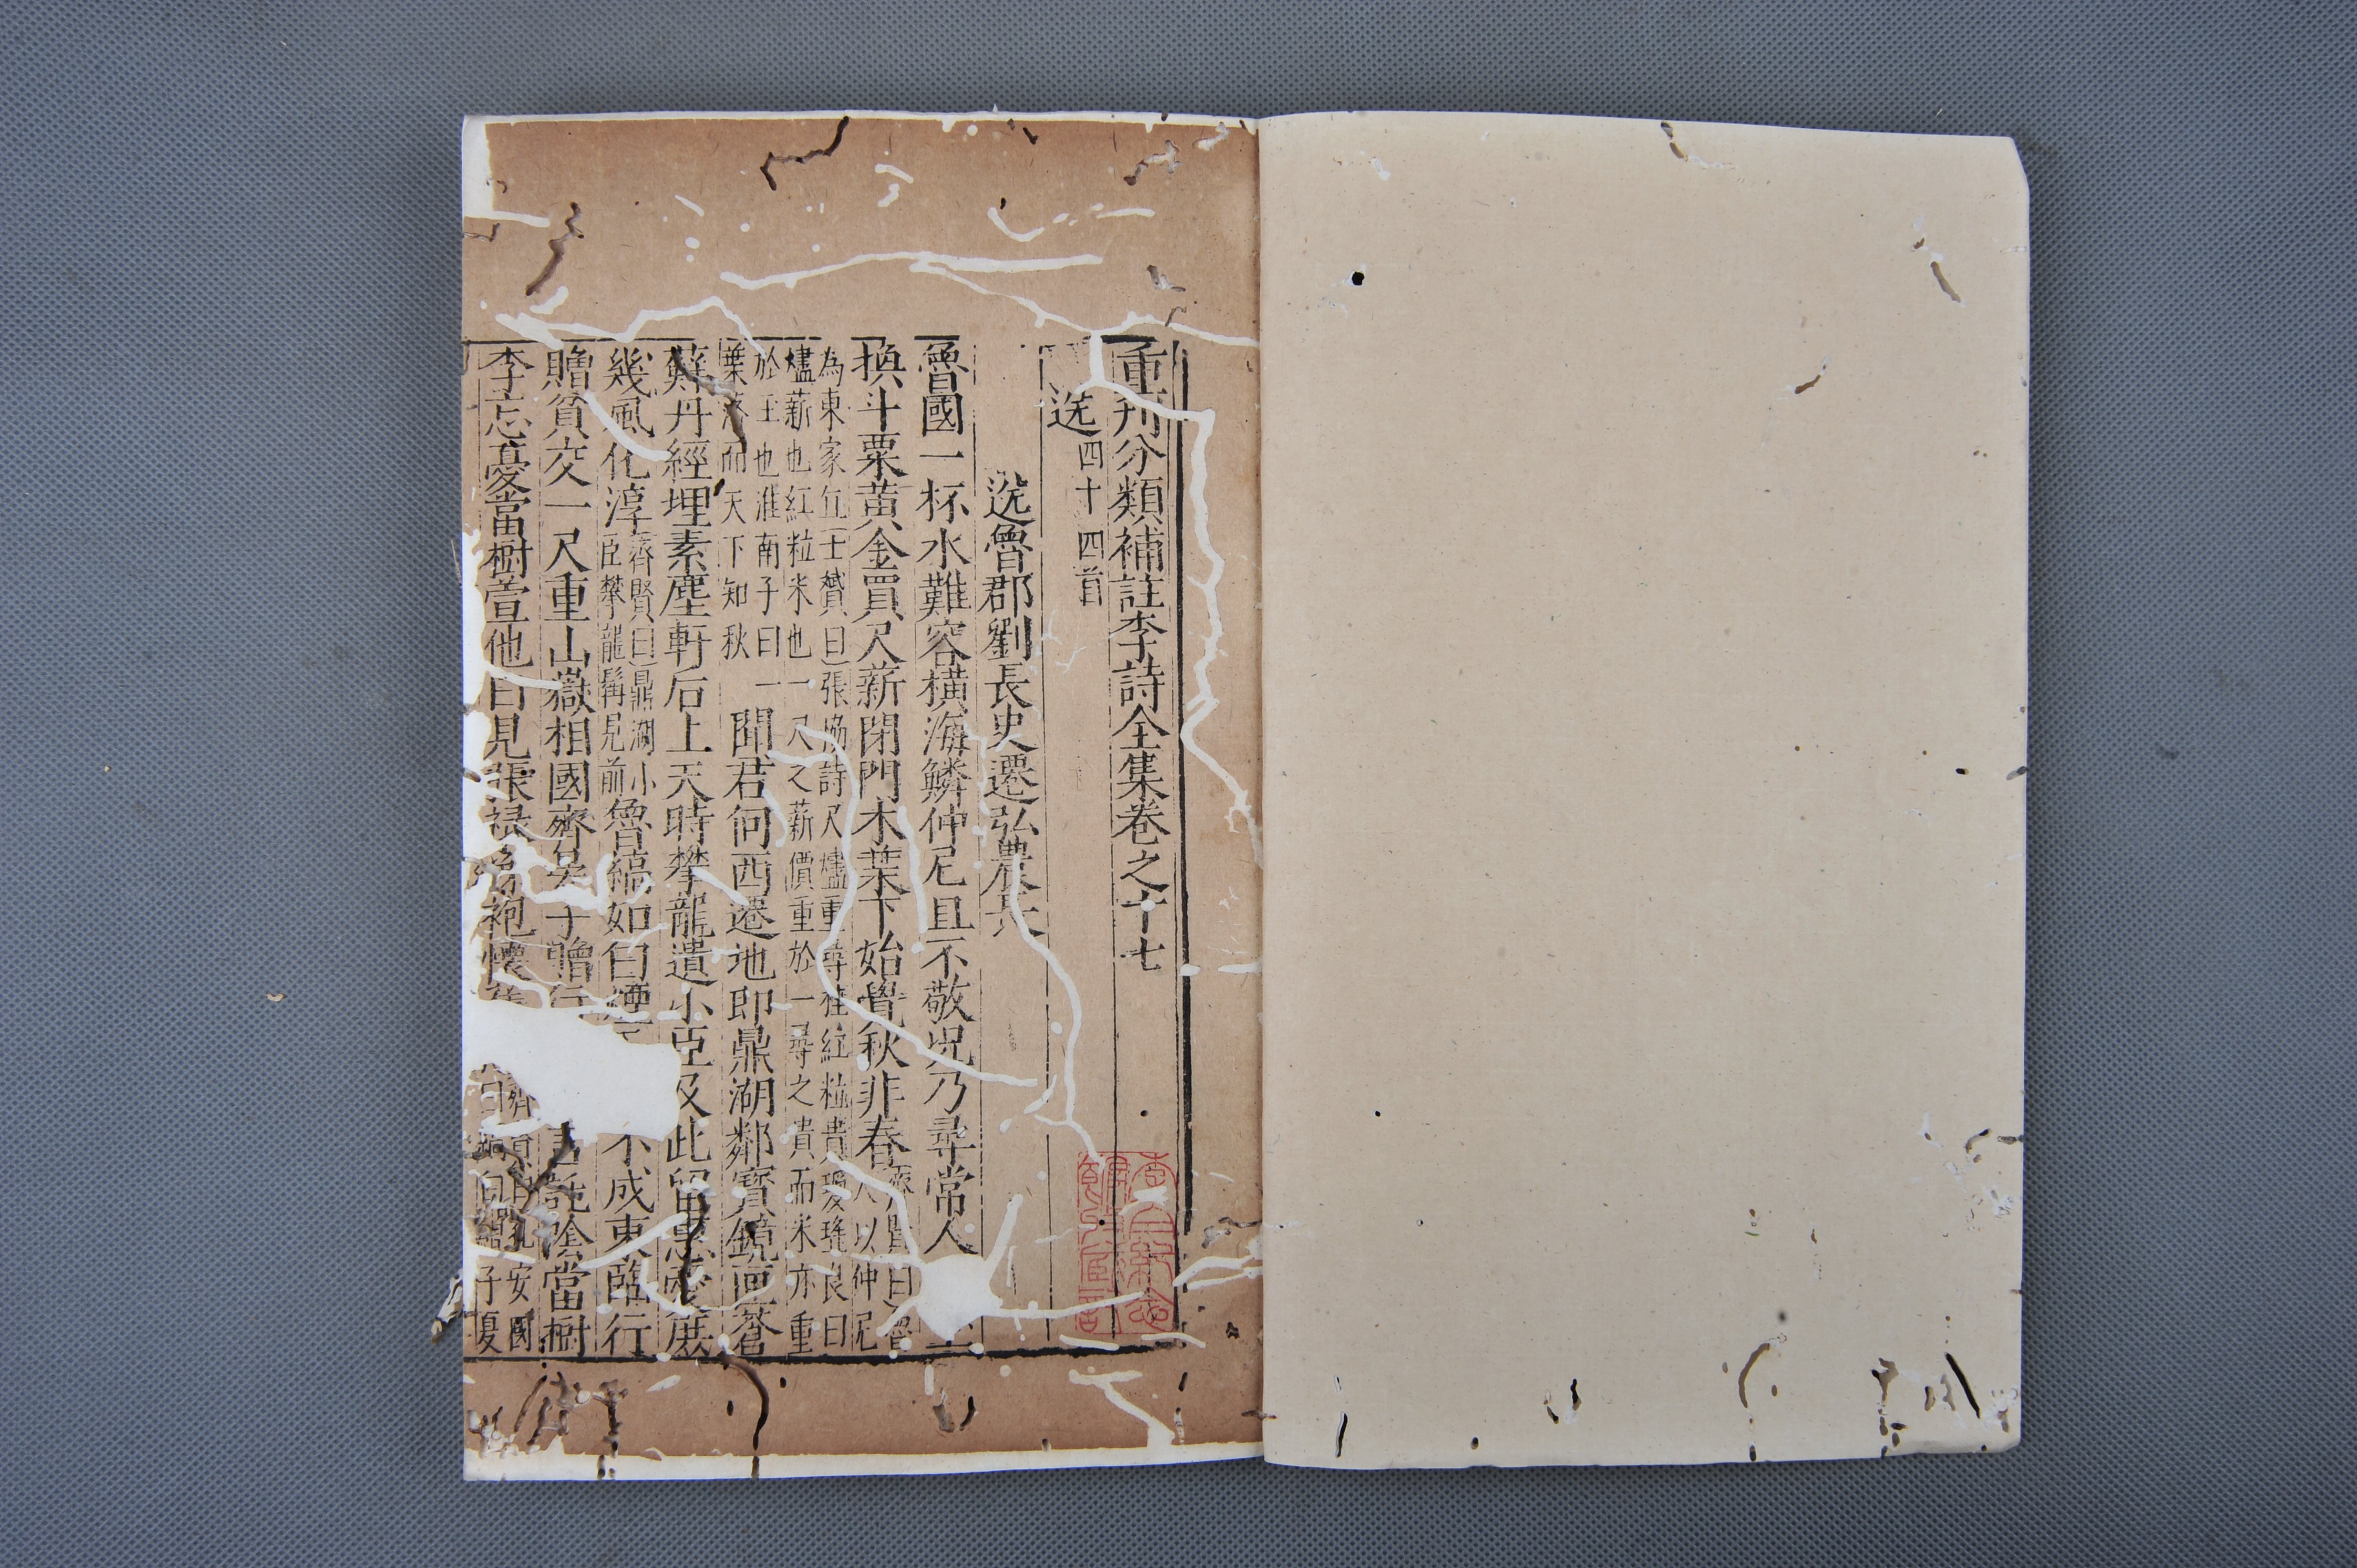 重刊分類補註李詩全集卷之十七
送四十四首
送魯郡劉長史遷弘農長
魯國一杯水難容横海鱗仲尼且不敬况乃尋常人
換斗粟黄金買尺薪閉門木葉下始覺秋非春齊賢曰魯人以仲尼
為東家丘士贇曰張協詩尺燼重尋桂紅粒貴瓊瑤良曰
燼薪也紅粒米也一尺之薪價重於一尋之貴而米亦重
於玉也淮南子曰一
葉落而天下知秋
聞君向西遷地即鼎湖鄰寶鏡匣蒼
蘚丹經埋素塵軒后上天時攀龍遺小臣及此留惠愛庶
幾風化淳齊賢曰鼎湖小
臣攀龍髯見前
魯縞如白煙不成東臨行
贈貧交一尺重山嶽相國齊晏子贈行言託陰當樹
李忘憂當樹萱他日見張禄綈袍懷
齊賢曰孔安國
曰縞白繒子夏